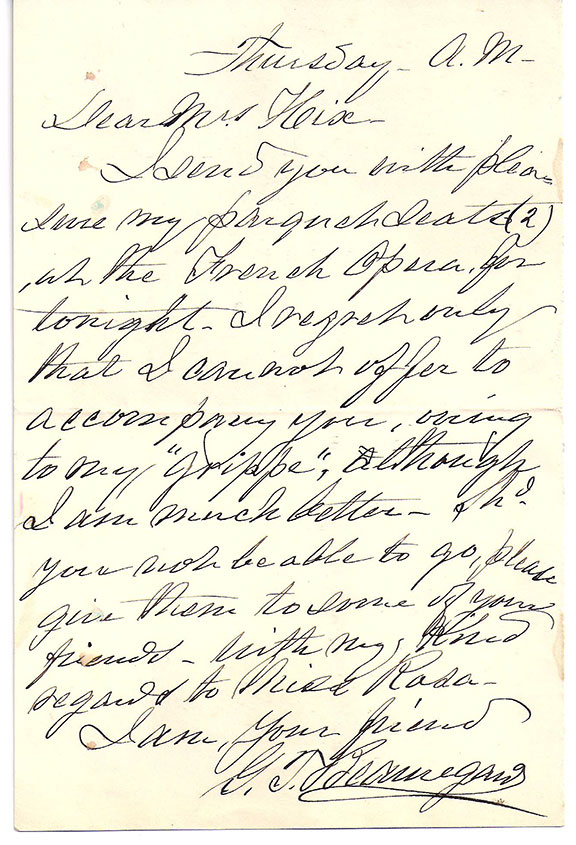 Thursday - A.M -
Dear Mrs Hix -
I send you with plea-
sure my parquet seats (2)
, at the French Opera, for
tonight - I regret only
that I cannot offer to
accompany you, owing
to my "grippe", although
I am much better - Shd
you not be able to go, please
give them to some of your
friends - with my kind
regards to Miss Rosa -
I am, your friend
G. T. Beauregard